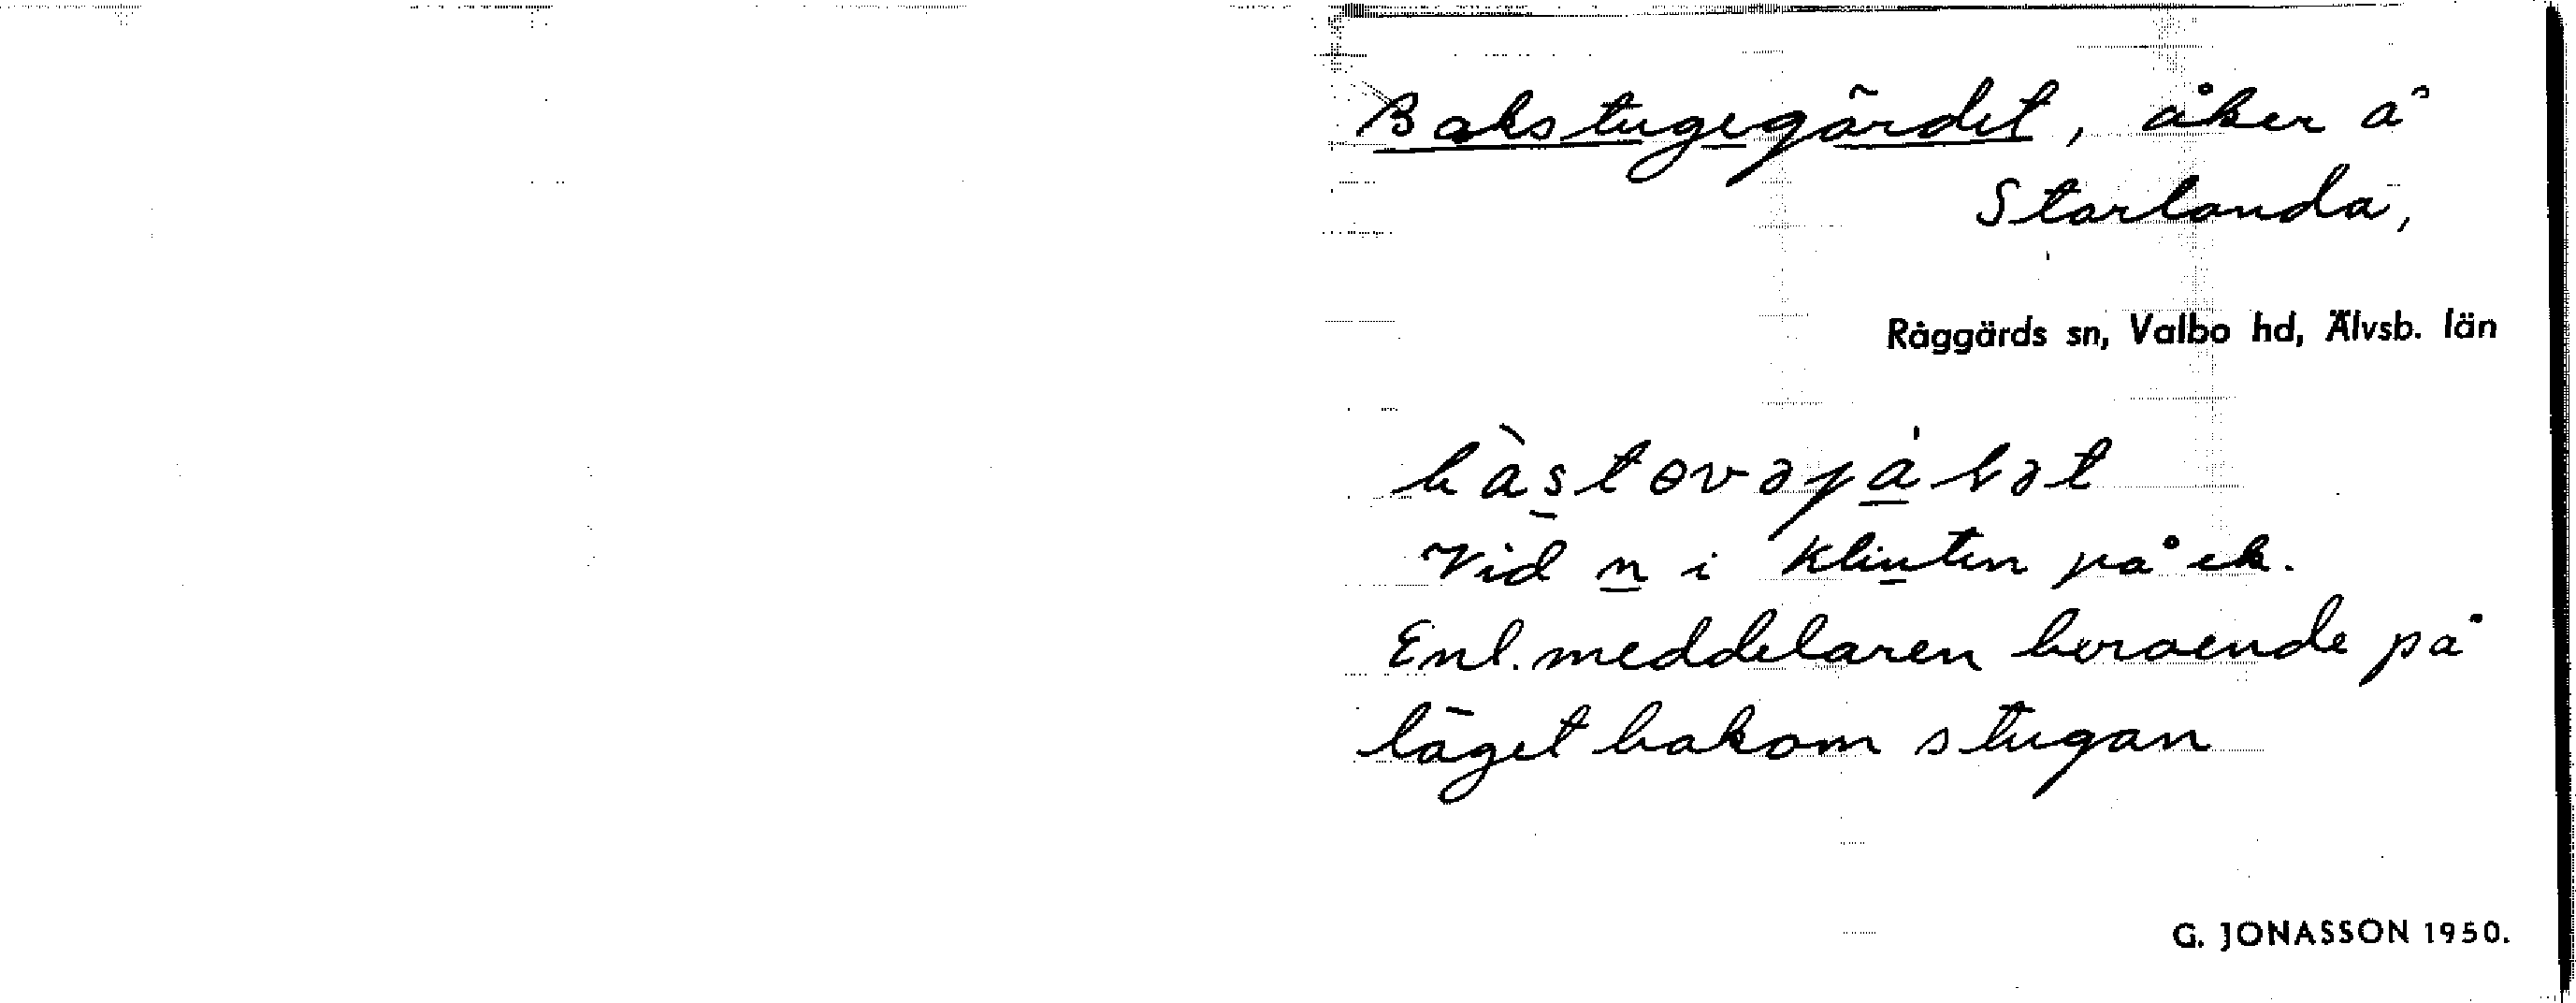 Bakstugegärdet, åker å
Starlanda,
Råggärds sn, Valbo hd, Älvsb. län
bàstovəjàɽət
Vid n i Klinten på ek.
Enl. meddelaren beroende på
läget bakom stugan
G. JONASSON 1950.